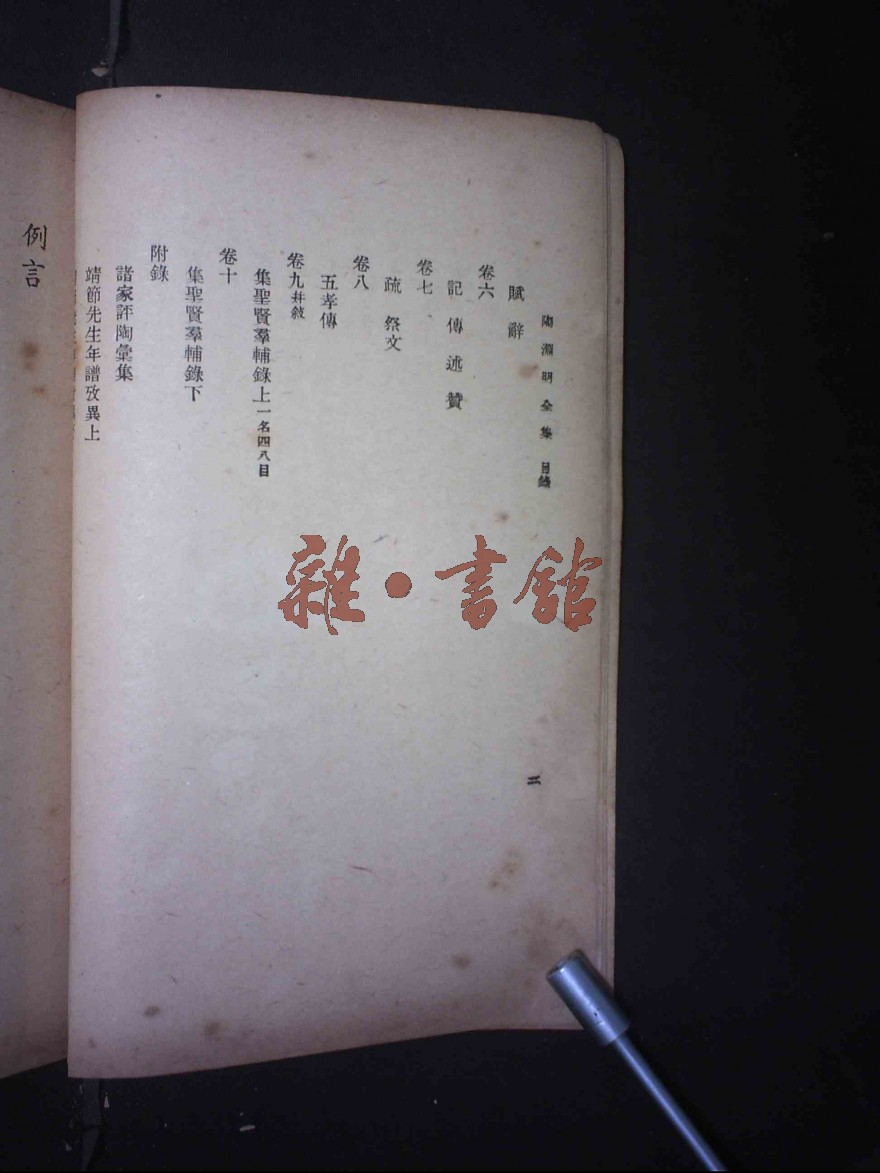 陶淵明全集 目錄
賦 辭
卷六
記 傳 述 贊
卷七
疏 祭文
卷八
五孝傳
卷九并敘
集聖賢羣輔錄上一名四八目
卷十
集聖賢羣輔錄下
附錄
諸家評陶彙集
靖節先生年譜攷異上
二
例言
雜·書館